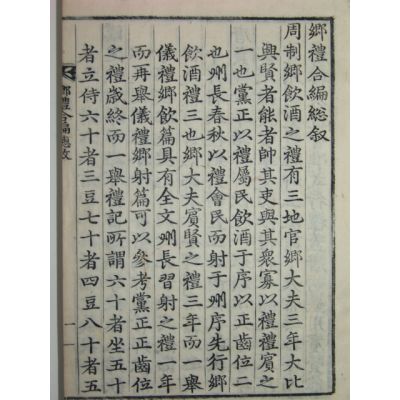 鄉禮合編總叙
周制鄉飮酒之禮有三地官鄉大夫三年大比
興賢者能者帥其吏與其衆寡以禮禮賓之
一也黨正以禮屬民飮酒于序以正齒位二
也州長春秋以禮會民而射于州序先行鄉
飮酒禮三也鄉大夫賓賢之禮三年而一擧
儀禮鄉飮篇具有全文州長習射之禮一年
而再擧儀禮鄉射篇可以參考黨正正齒位
之禮歲終而一擧禮記所謂六十者坐五十
者立侍六十者三豆七十者四豆八十者五
鄉禮合編總敘
一